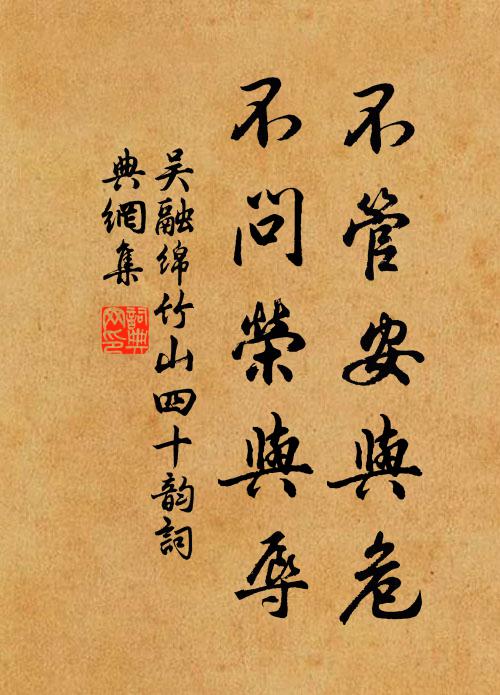 不管安與危
不問榮與辱
吴融绵竹山四十韵詞
典網集
詞典
网印